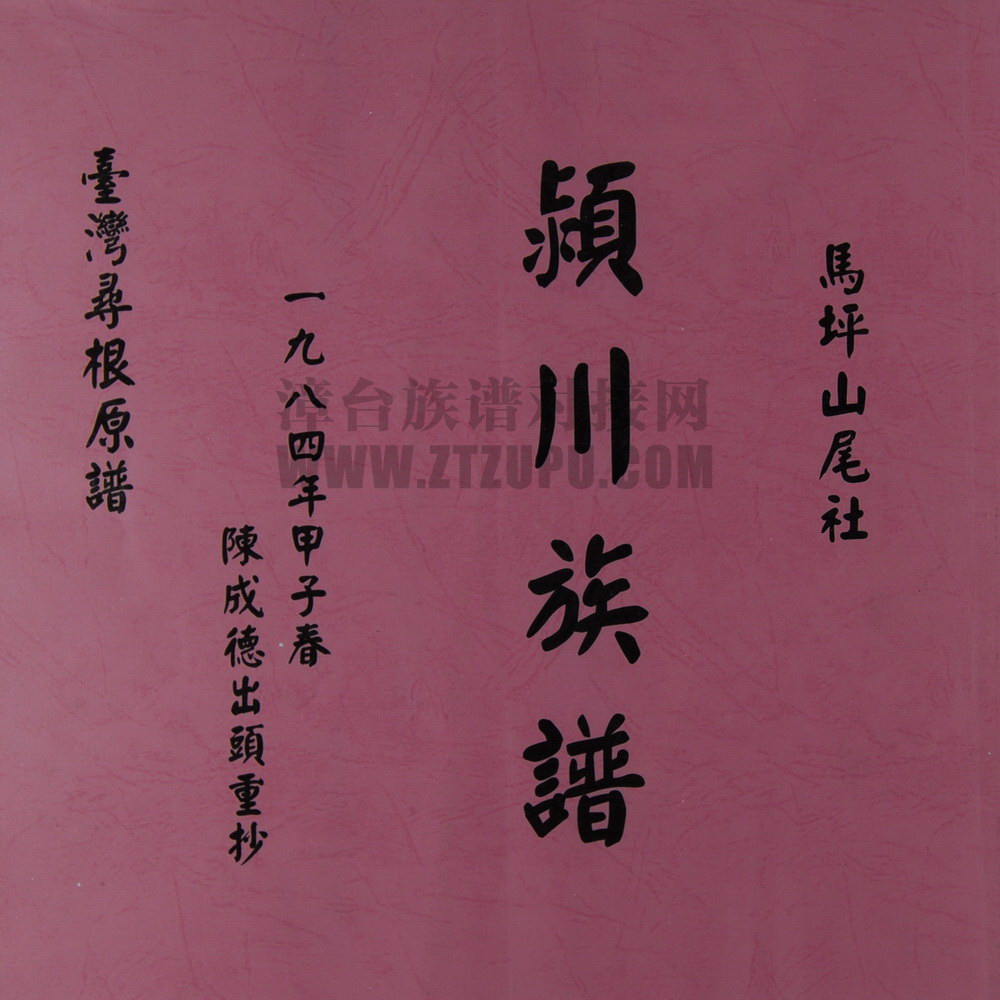 馬坪山尾社
潁川族譜
一九八四年甲子春
陳成德出頭重抄
臺灣尋根原譜
漳台族谱对接网
WWW.ZTZUPU.COM